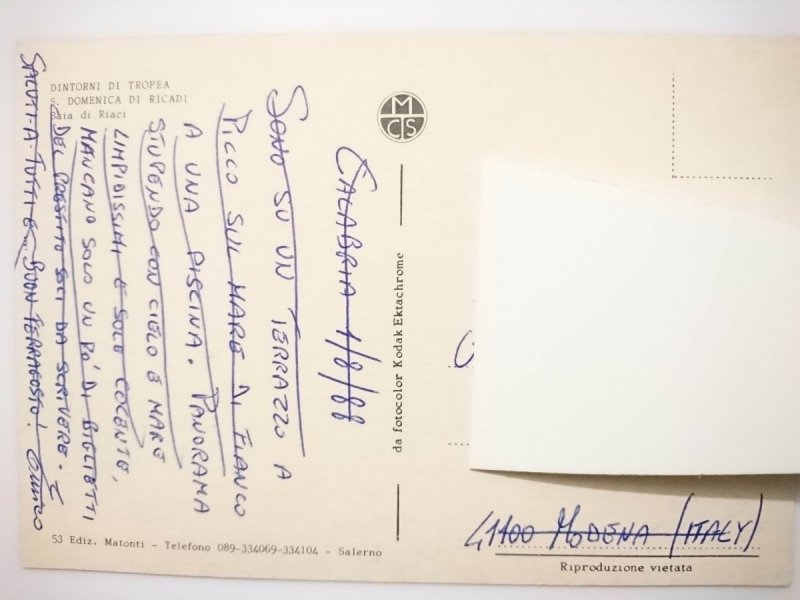 DINTORNI DI TROPEA
S. DOMENICA DI RICADI
Baia di Riaci
MCS
CALABRIA 1/8/88
SONO SU UN TERRAZZO A
PICCO SUL MARE DI FIANCO
A UNA PISCINA. PANORAMA
STUPENDO CON CIELO E MARE
LIMPIDISSIMI E SOLE COCENTE,
MANCANO SOLO UN PO' DI BIGLIETTI
DEL PRESTITO SOCI DA SCRIVERE. E
SALUTI A TUTTI E... BUON FERRAGOSTO!
da fotocolor Kodak Ektachrome
41100 MODENA (ITALY)
Riproduzione vietata
53 Ediz. Matonti - Telefono 089-334069-334104 - Salerno